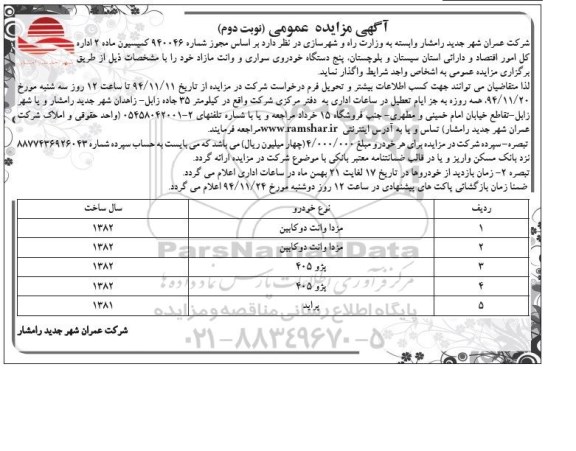 آگهی مزایده عمومی (نوبت دوم)
شرکت عمران شهر جدید رامشار وابسته به وزارت راه و شهرسازی در نظر دارد بر اساس مجوز شماره ۹۴۰۰۴۶ کمیسیون ماده ۲ اداره
کل امور اقتصاد و دارائی استان سیستان و بلوچستان، پنج دستگاه خودروی سواری و وانت مازاد خود را با مشخصات ذیل از طریق
برگزاری مزایده عمومی به اشخاص واجد شرایط واگذار نماید.
لذا متقاضیان می توانند جهت کسب اطلاعات بیشتر و تحویل فرم درخواست شرکت در مزایده از تاریخ ۹۴/۱۱/۱۱ تا ساعت ۱۲ روز سه شنبه مورخ
۹۴/۱۱/۲۰، همه روزه به جز ایام تعطیل در ساعات اداری به دفتر مرکزی شرکت واقع در کیلومتر ۳۵ جاده زابل- زاهدان شهر جدید رامشار و یا شهر
زابل-تقاطع خیابان امام خمینی و مطهری- جنب فروشگاه ۱۵ خرداد مراجعه و یا با شماره تلفنهای ۲-۰۵۴۵۸۰۴۲۰۰۱ (واحد حقوقی و املاک شرکت
عمران شهر جدید رامشار) تماس و یا به آدرس اینترنتی www.ramshar.ir مراجعه فرمایند.
تبصره-سپرده شرکت در مزایده برای هر خودرو مبلغ ۴/۰۰۰/۰۰۰(چهار میلیون ریال) می باشد که می بایست به حساب سپرده شماره ۸۸۷۷۴۳۶۹۲۶۰۴۳
نزد بانک مسکن واریز و یا در قالب ضمانتنامه معتبر بانکی با موضوع شرکت در مزایده ارائه گردد.
تبصره ۲- زمان بازدید از خودروها در تاریخ ۱۷ لغایت ۲۱ بهمن ماه در ساعات اداری اعلام می گردد.
ضمنا زمان بازگشائی پاکت های پیشنهادی در ساعت ۱۲ روز دوشنبه مورخ ۹۴/۱۱/۲۴ اعلام می گردد.
ردیف نوع خودرو سال ساخت
۱ مزدا وانت دوکابین ۱۳۸۲
۲ مزدا وانت دوکابین ۱۳۸۲
۳ پژو ۴۰۵ ۱۳۸۲
۴ پژو ۴۰۵ ۱۳۸۲
۵ پراید ۱۳۸۱
شرکت عمران شهر جدید رامشار
ParsNamadData
مرکز فرآوری اطلاعات پارس نماد داده ها
پایگاه اطلاع رسانی مناقصه و مزایده
۰۲۱-۸۸۳۴۹۶۷۰-۵